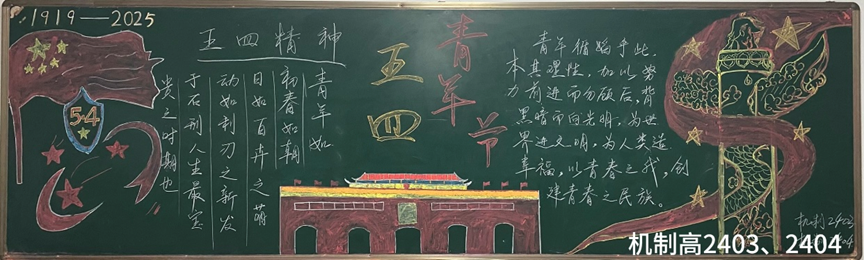 1919—2025
五四精神
青年如
初春如朝
日如百卉之萌
动如利刃之新发
于硎人生最宝
贵之时期也
5·4
五四
青年节
青年循蹈乎此，
本其理性，加以努
力前进而勿顾后，背
黑暗而向光明，为世
界进文明，为人类造
幸福，以青春之我，创
建青春之民族。
机制2403
机制高2403、2404